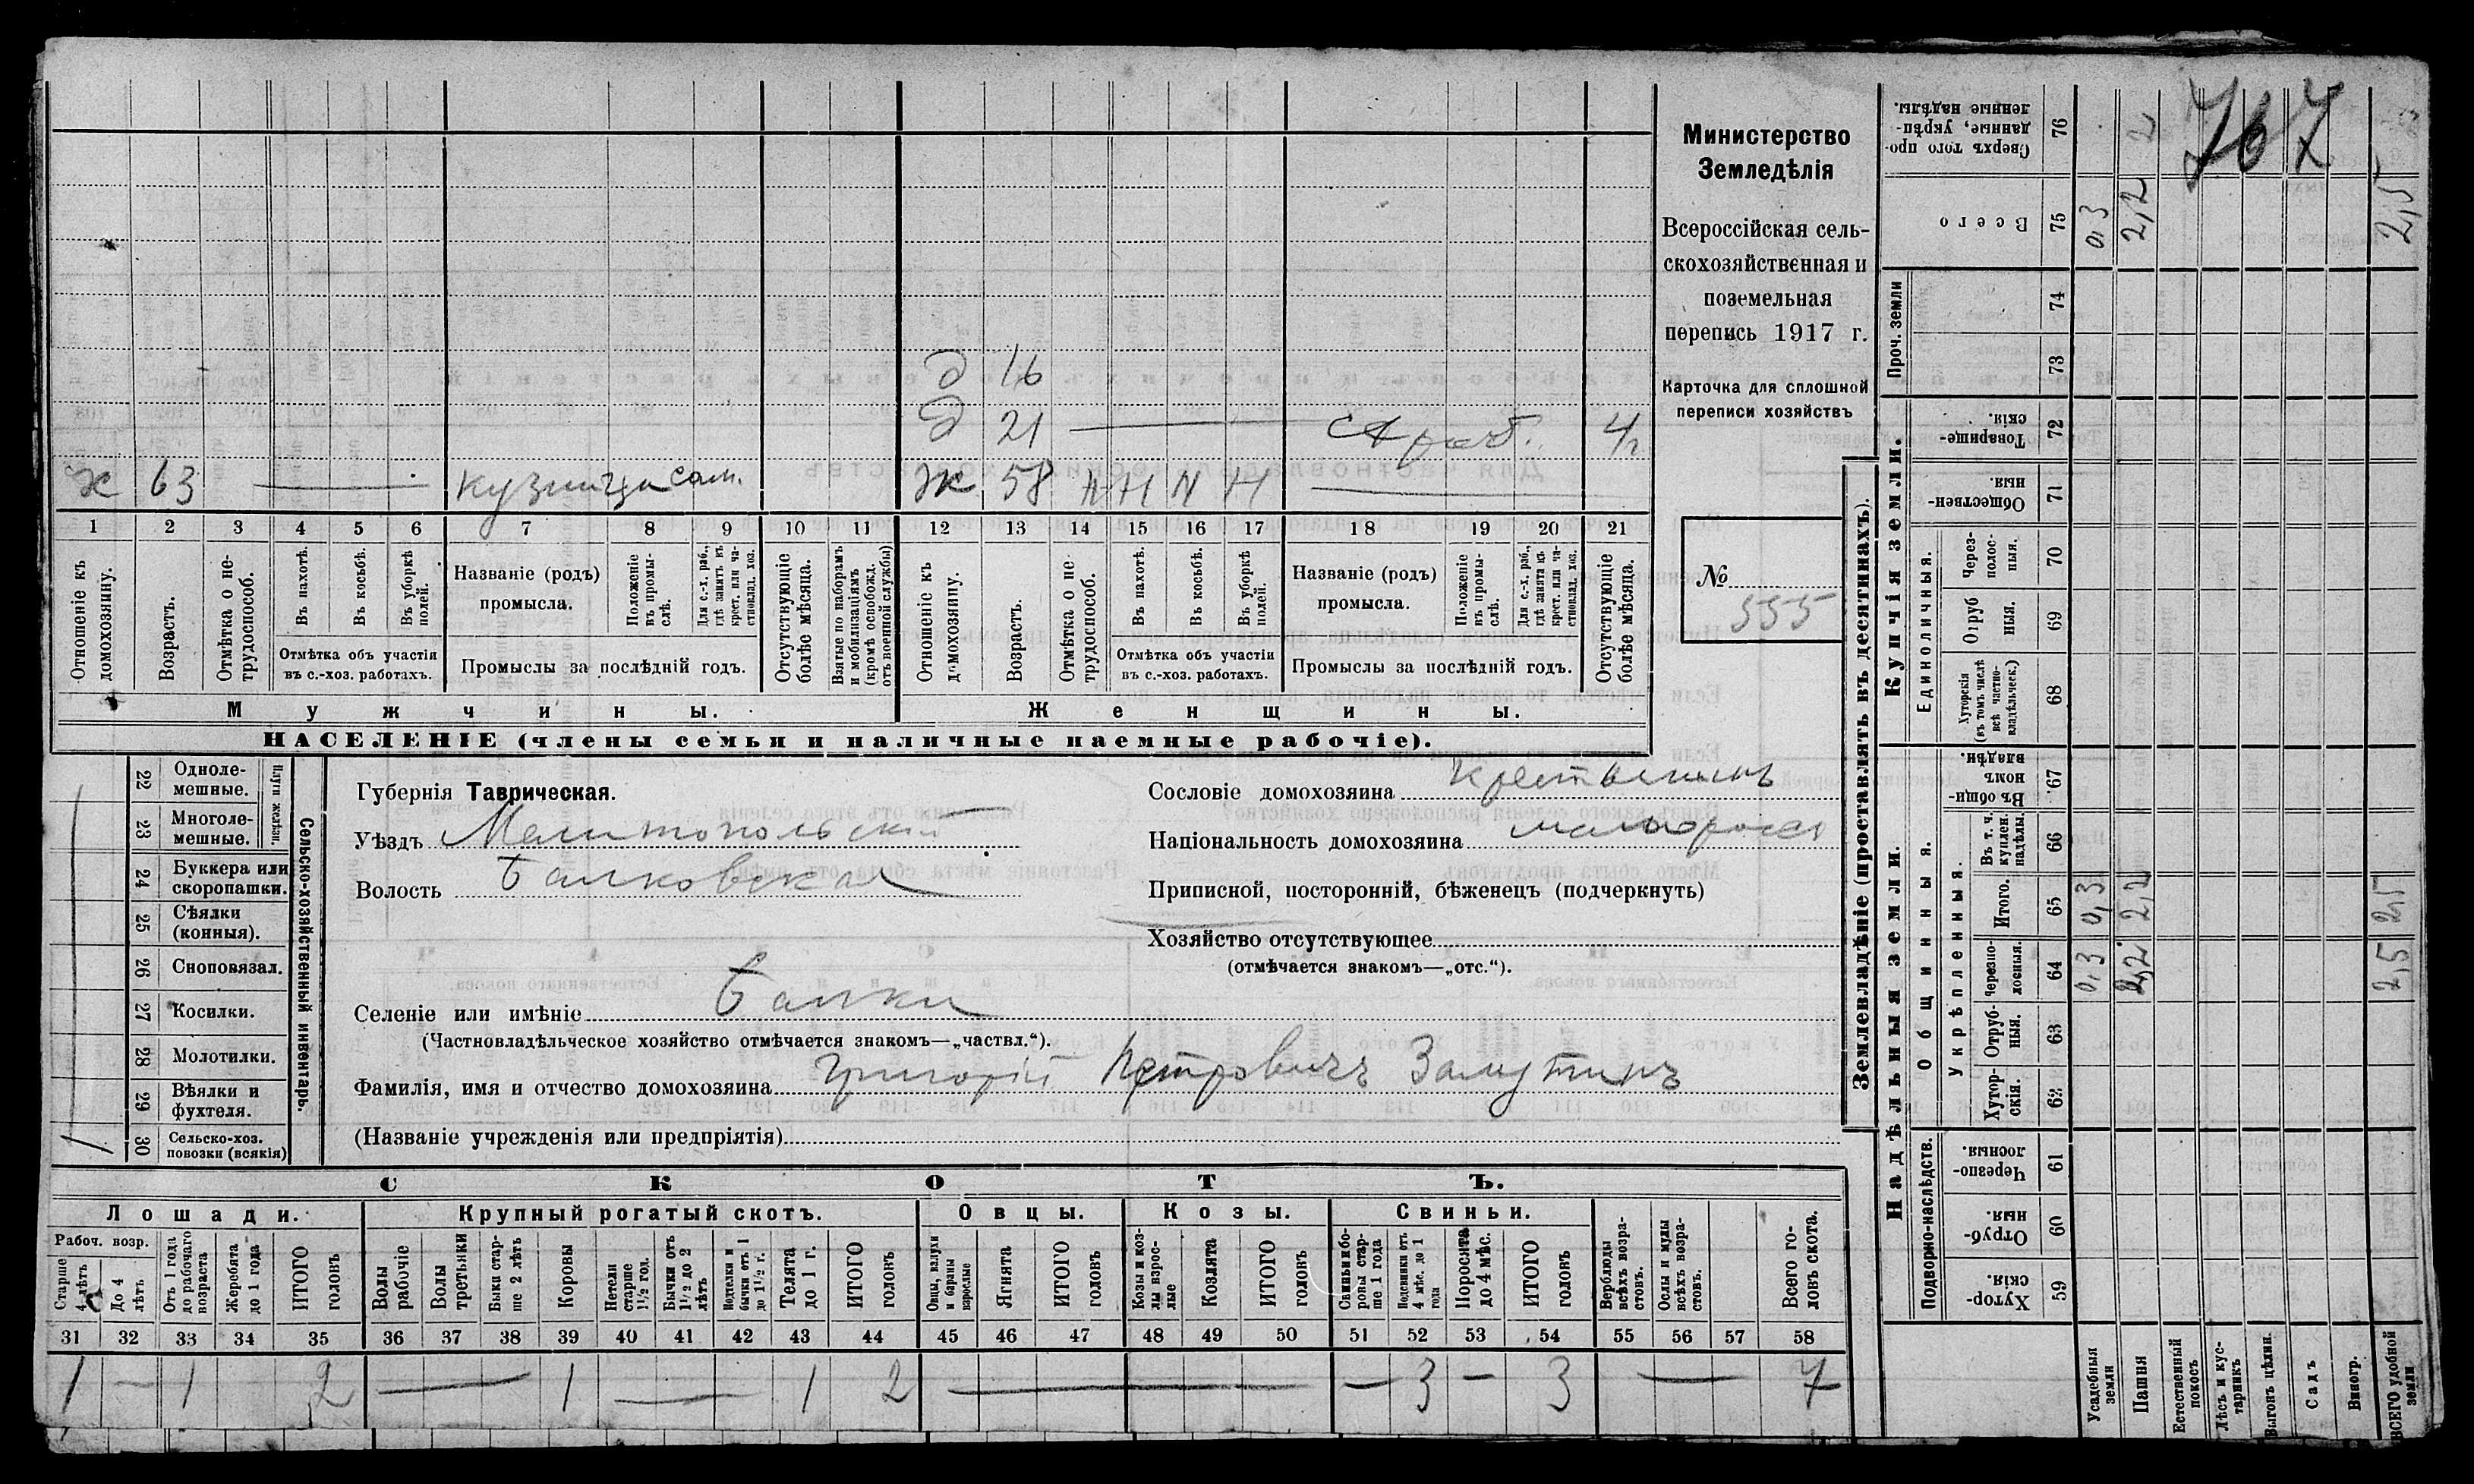 767
Министерство
Земледѣлія
Всероссійская сель-
скохозяйственная и
поземельная
перепись 1917 г.
Карточка для сплошной
переписи хозяйствъ
№
555
Д 16
Д 21 — раб. 4 г
х 63 — кузница сам. Ж 58 Н Н Н Н —
1 2 3 4 5 6 7 8 9 10 11 12 13 14 15 16 17 18 19 20 21
Отношеніе къ домохозяину.
Возрастъ.
Отмѣтка о не-трудоспособ.
Въ пахотѣ.
Въ косьбѣ.
Въ уборкѣ полей.
Отмѣтка объ участіи
въ с.-хоз. работахъ.
Названіе (родъ)
промысла.
Положеніе въ промы-слѣ.
Для с.-х. раб., гдѣ занятъ къ крест. или ча-стновлад. хоз.
Промыслы за послѣдній годъ.
Отсутствующіе болѣе мѣсяца.
Взятые по наборамъ и мобилизаціямъ (кромѣ освобожд. отъ военной службы)
Отношеніе къ домохозяину.
Возрастъ.
Отмѣтка о не-трудоспособ.
Въ пахотѣ.
Въ косьбѣ.
Въ уборкѣ полей.
Отмѣтка объ участіи
въ с.-хоз. работахъ.
Названіе (родъ)
промысла.
Положеніе въ промы-слѣ.
Для с.-х. раб., гдѣ занята къ крест. или ча-стновлад. хоз.
Промыслы за послѣдній годъ.
Отсутствующіе болѣе мѣсяца.
Мужчины. Женщины.
НАСЕЛЕНІЕ (члены семьи и наличные наемные рабочіе).
Сельско-хозяйственный инвентарь.
Плуги желѣзн.
22 Одноле-мешные.
23 Многоле-мешные.
24 Буккера или скоропашки.
25 Сѣялки (конныя).
26 Сноповязал.
27 Косилки.
28 Молотилки.
29 Вѣялки и фухтеля.
30 Сельско-хоз. повозки (всякія)
1
Губернія Таврическая.
Уѣздъ Мелитопольскій
Волость Балковская
Сословіе домохозяина крестьянинъ
Національность домохозяина малороссъ
Приписной, посторонній, бѣженецъ (подчеркнуть)
Хозяйство отсутствующее
(отмѣчается знакомъ—„отс.“).
Селеніе или имѣніе Балки
(Частновладѣльческое хозяйство отмѣчается знакомъ—„частвл.“).
Фамилія, имя и отчество домохозяина Григорій Петровичъ Замутинъ
(Названіе учрежденія или предпріятія)
СКОТЪ.
Лошади. Крупный рогатый скотъ. Овцы. Козы. Свиньи.
Рабоч. возр.
Старше 4 лѣтъ
До 4 лѣтъ
Отъ 1 года до рабочаго возраста
Жеребята до 1 года
ИТОГО головъ
Волы рабочіе
Волы третьяки
Быки стар-ше 2 лѣтъ
Коровы
Нетели старше 1½ год.
Бычки отъ 1½ до 2 лѣтъ
Телки и бычки отъ 1 до 1½ г.
Телята до 1 г.
ИТОГО головъ
Овцы, валухи и бараны взрослые
Ягнята
ИТОГО головъ
Козы и коз-лы взрос-лые
Козлята
ИТОГО головъ
Свиньи и бо-ровы стар-ше 1 года
Подсвинки отъ 4 мѣс. до 1 года
Поросята до 4 мѣс.
ИТОГО головъ
Верблюды всѣхъ возра-стовъ.
Ослы и мулы всѣхъ возра-стовъ.
Всего го-ловъ скота.
31 32 33 34 35 36 37 38 39 40 41 42 43 44 45 46 47 48 49 50 51 52 53 54 55 56 57 58
1 — 1 2 — 1 — 1 2 — — 3 — 3 — 7
Землевладѣніе (проставлять въ десятинахъ).
Надѣльныя земли. Купчія земли.
Проч. земли
Подворно-наслѣдств.
Общинныя.
Укрѣпленныя.
Единоличныя.
Хутор-скія. 59
Отруб-ныя. 60
Черезпо-лосныя. 61
Хутор-скія. 62
Отруб-ныя. 63
Черезпо-лосныя. 64
Итого. 65
Въ т. ч. куплен. надѣлы. 66
Въ общи-номъ владѣн. 67
Хуторскія (въ томъ числѣ всѣ частно-владѣльческ.) 68
Отруб ныя. 69
Через-полос-ныя. 70
Обществен-ныя. 71
Товарище-скія. 72
73
74
Всего 75
Сверхъ того про-данные, укрѣп-ленные надѣлы. 76
Усадебныя земли 0,3 0,3 0,3
Пашня 2,2 2,2 2,2 2
Естественный покосъ
Лѣсъ и кус-тарникъ
Выгонъ цѣлин.
Садъ
Виногр.
ВСЕГО удобной земли 2,5 2,5 2,5